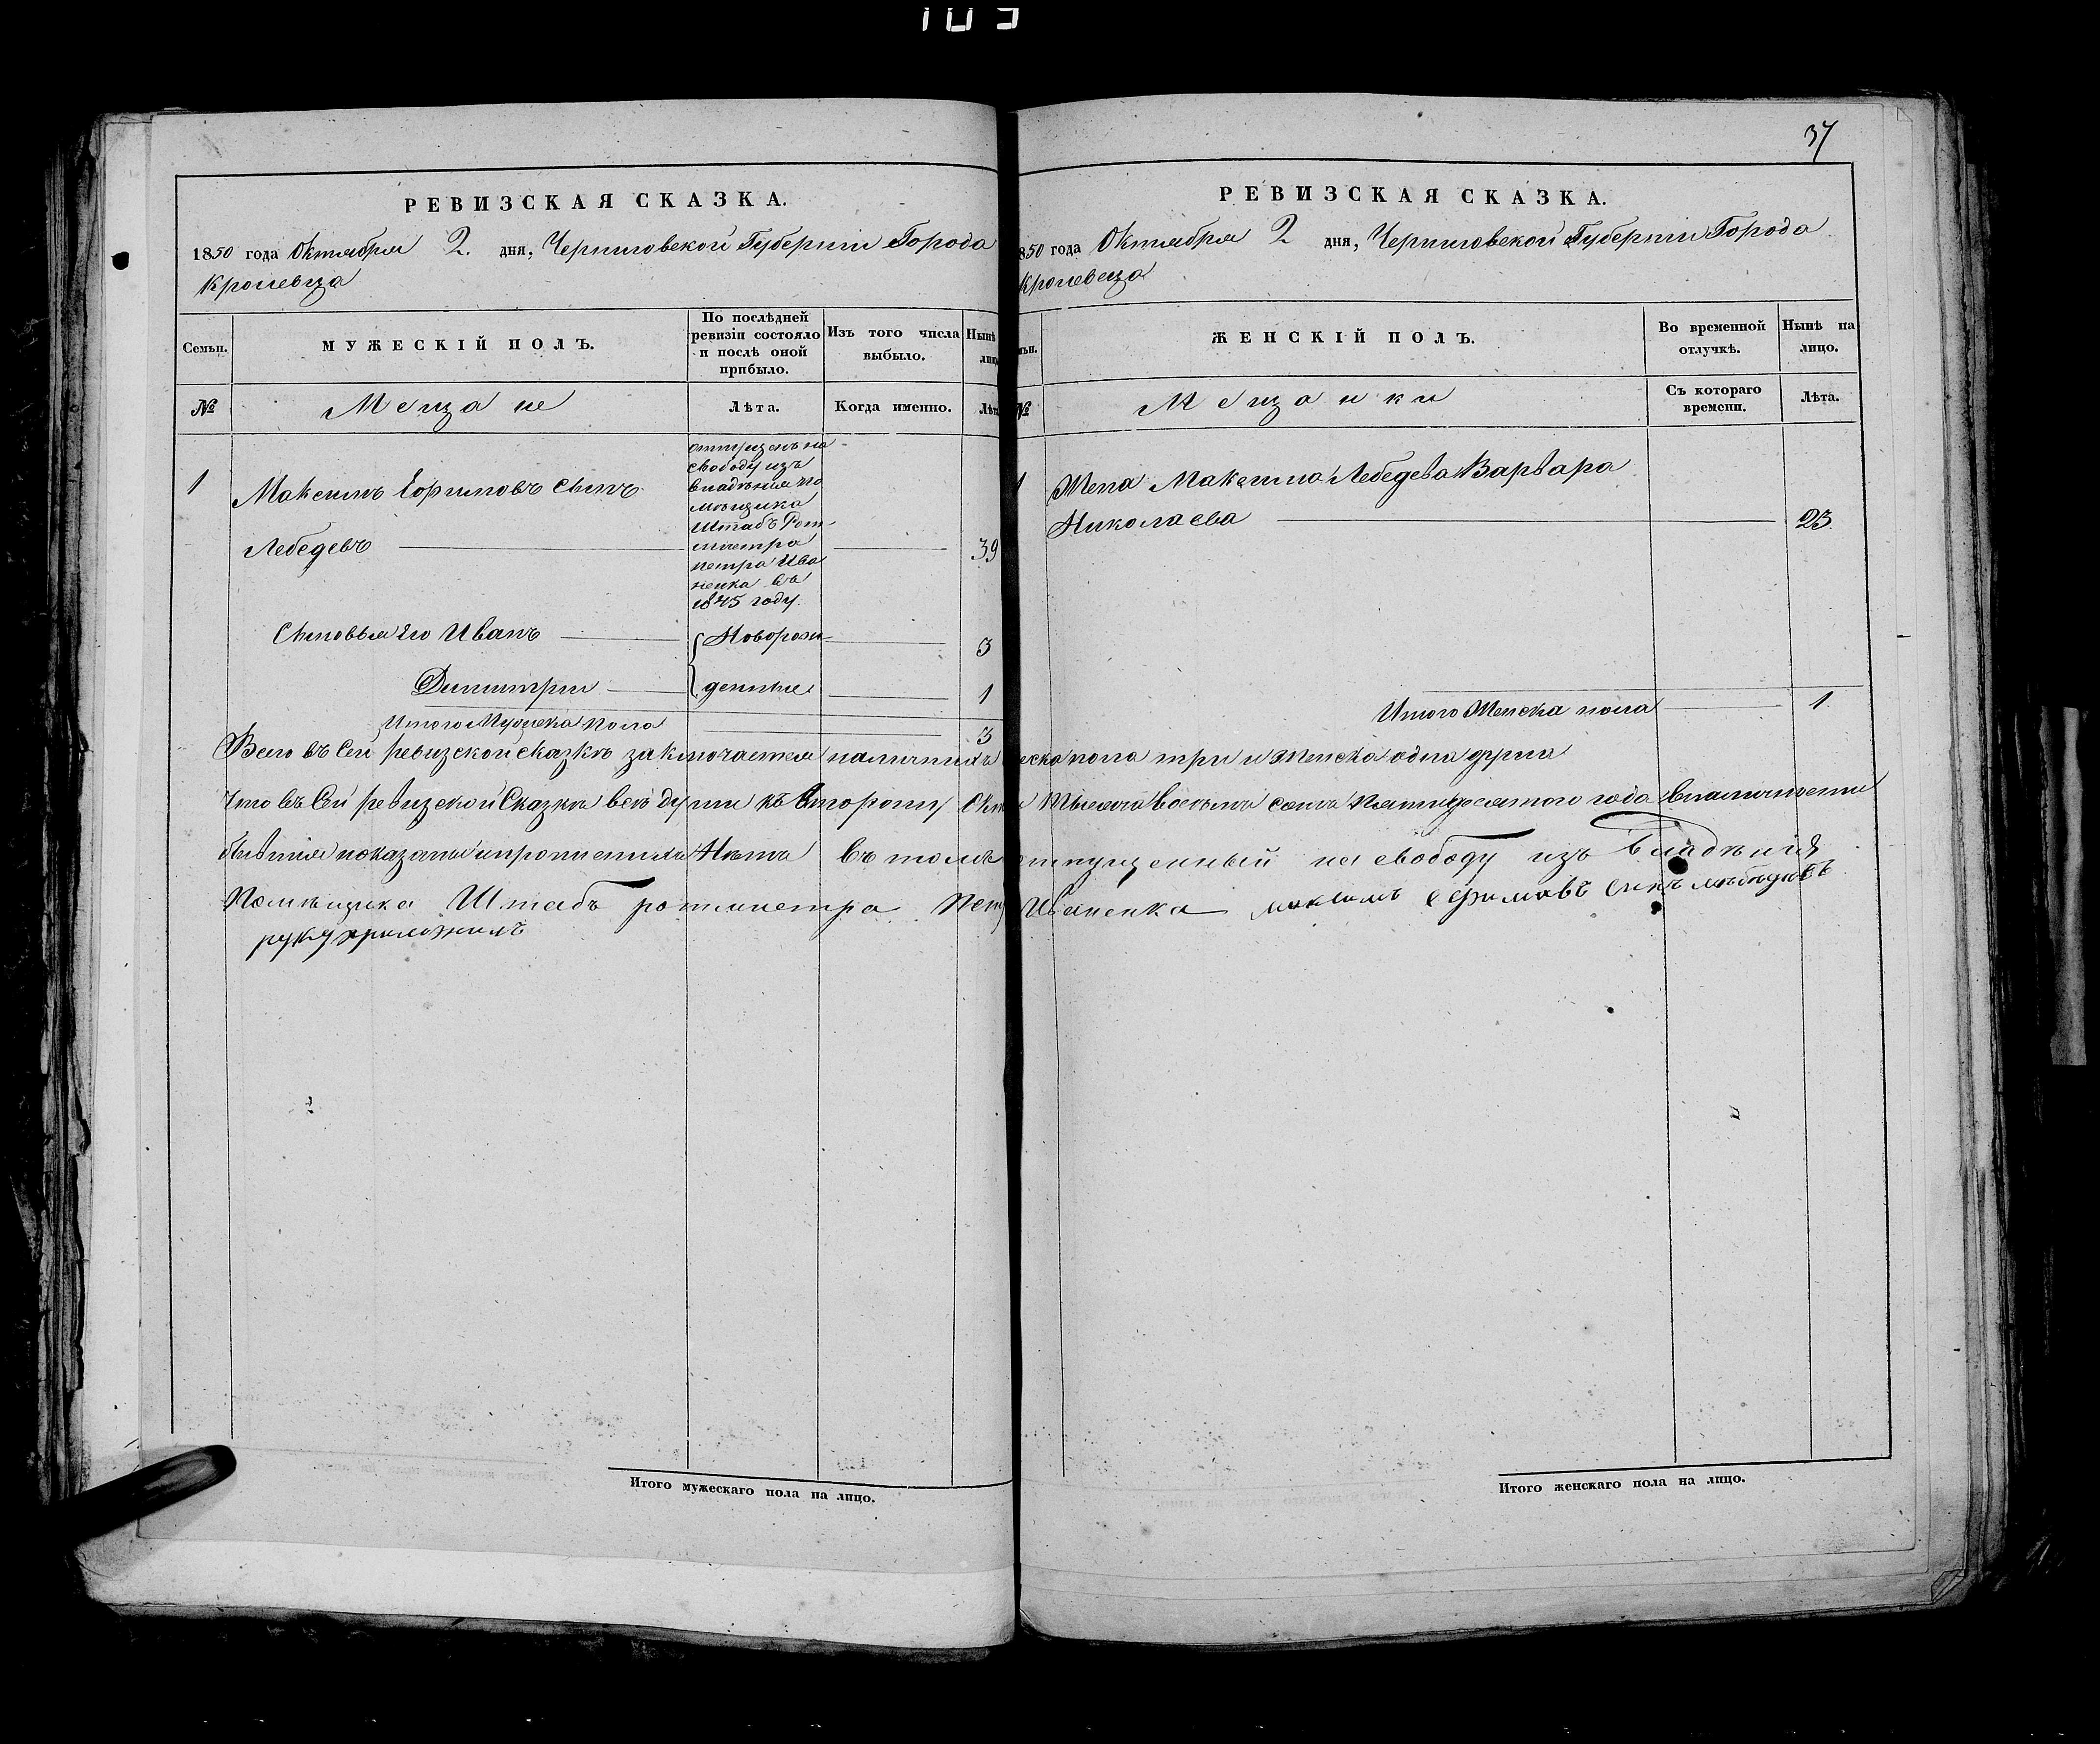 105
РЕВИЗСКАЯ СКАЗКА.
1850 года Октября 2. дня, Черниговской Губернии Города
Кролевца
Семьи.
МУЖЕСКІЙ ПОЛЪ.
По послѣдней
ревизіи состояло
и послѣ оной
прибыло.
Изъ того числа
выбыло.
Нынѣ
лицо
№
Мещане
Лѣта.
Когда именно.
Лѣта
1
Максимъ Ефимовъ сынъ
Лебедевъ
отпущенъ на
свободу изъ
владѣния по
мѣщика
Штабъ Рот
мистра
петра Ива
ненка въ
1845 году.
39
Сыновья Его Иванъ
Новорож
3
Димитрий
денные
1
Итого Мужеска пола
3
37
РЕВИЗСКАЯ СКАЗКА.
850 года Октября 2 дня, Черниговской Губернии Города
Кролевца
мьи.
ЖЕНСКІЙ ПОЛЪ.
Во временной
отлучкѣ.
Нынѣ на
лицо.
№
Мещанки
Съ котораго
времени.
Лѣта.
1
Жена Максима Лебедева Варвара
Николаева
23
Итого Женска пола
1
Всего въ Сей ревизской сказкѣ заключается наличныхъ еска пола три и Женска одна душа
Что въ Сей ревизской Сказкѣ всѣ души къ Второму Окт Тысяча восемь сотъ пятидесятого года вналичности
бывшия показаны и прописныхъ Нѣтъ въ томъ отпущенный на свободу изъ Владѣнія
Помѣщика Штабъ ротмистра Пет Иваненка максимъ ефимовъ синъ лѣбѣдѣвъ
руку приложилъ
Итого мужескаго пола на лицо.
Итого женскаго пола на лицо.